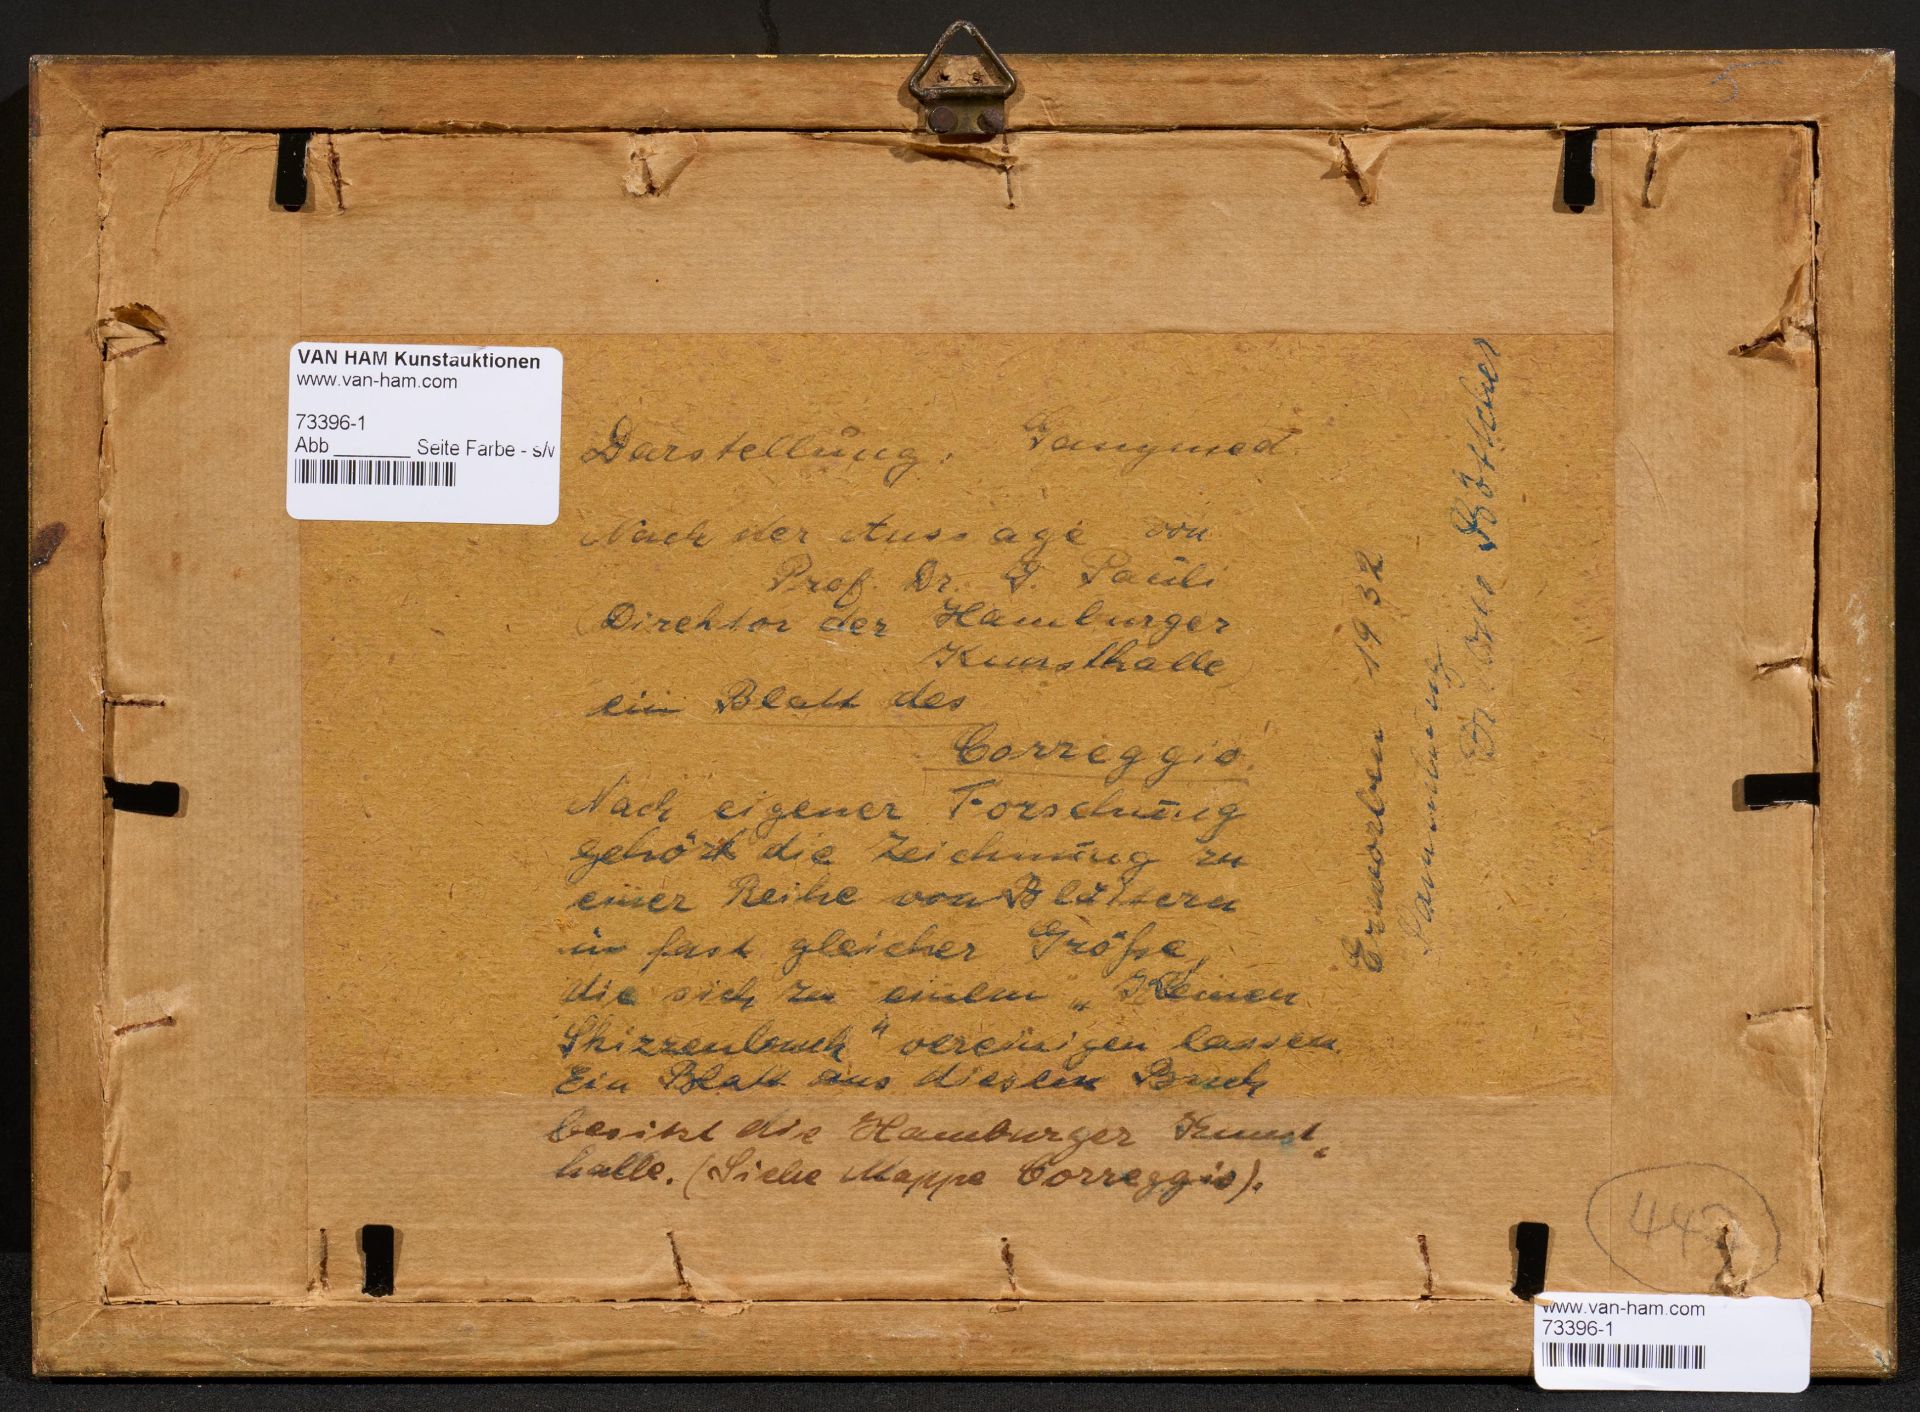 5
VAN HAM Kunstauktionen
www.van-ham.com
73396-1
Abb _______ Seite Farbe - s/w
Darstellung: Ganymed.
Nach der Aussage von
Prof. Dr. G. Pauli
(Direktor der Hamburger
Kunsthalle)
ein Blatt des
Correggio.
Nach eigener Forschung
gehört die Zeichnung zu
einer Reihe von Blättern
in fast gleicher Größe,
die sich zu einem „Kleinen
Skizzenbuch“ vereinigen lassen.
Ein Blatt aus diesem Buch
besitzt die Hamburger Kunst-
halle. (Siehe Mappe Correggio).
Erworben 1932
Sammlung
Böttcher
www.van-ham.com
73396-1